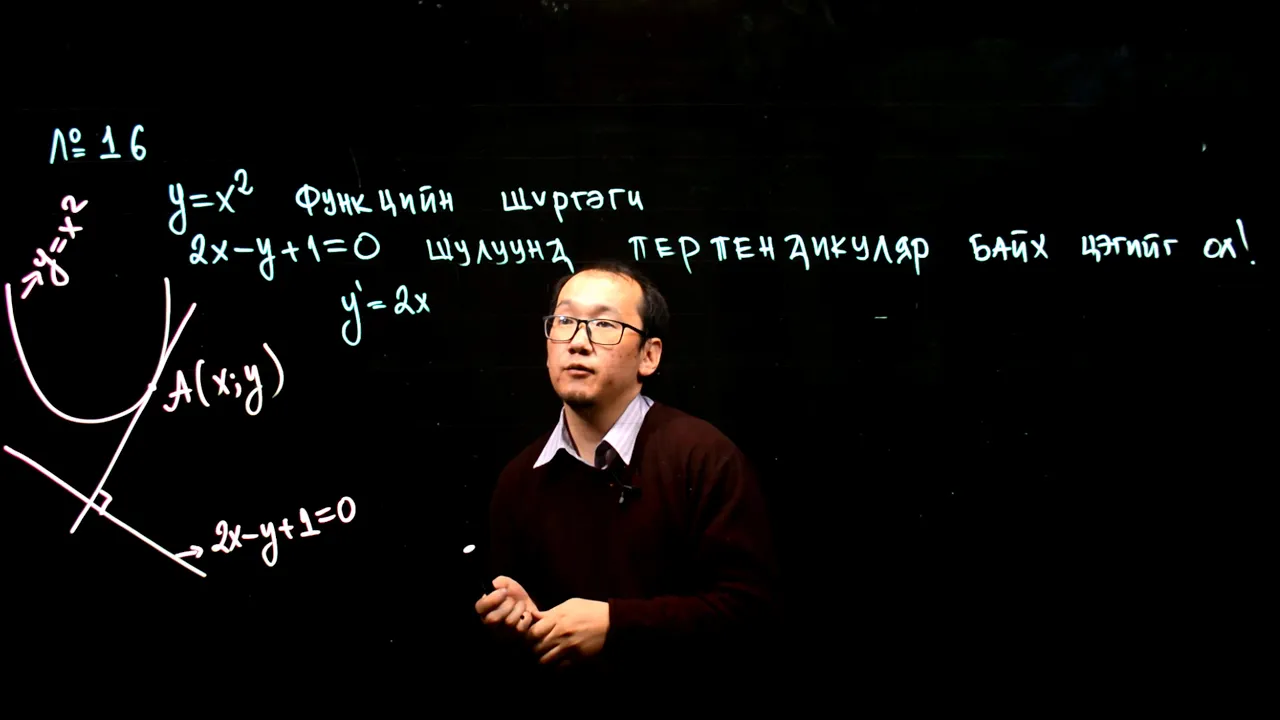 № 16
y=x² функцийн шүргэгч
2x-y+1=0 шулуунд перпендикуляр байх цэгийг ол!
y'=2x
y=x²
A(x;y)
2x-y+1=0